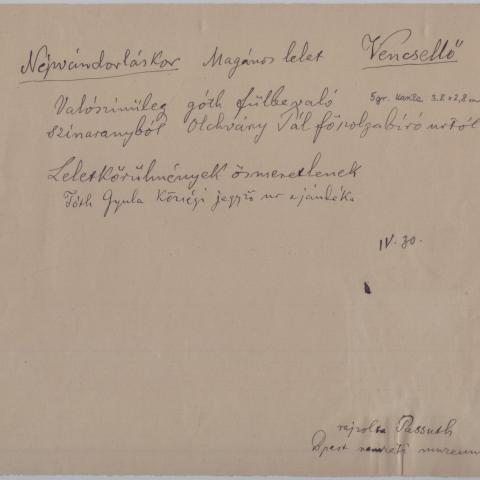 Népvándorláskor Magános lelet Vencsellő
Valószinüleg góth fülbevaló 5gr.
szinaranyból Olchváry Pál főszolgabíró urtól
Leletkörülmények ösmeretlenek
Tóth Gyula községi jegyző ur ajándéka
IV. 30.
rajzolta Passuth
Bpest nemzeti muzeum